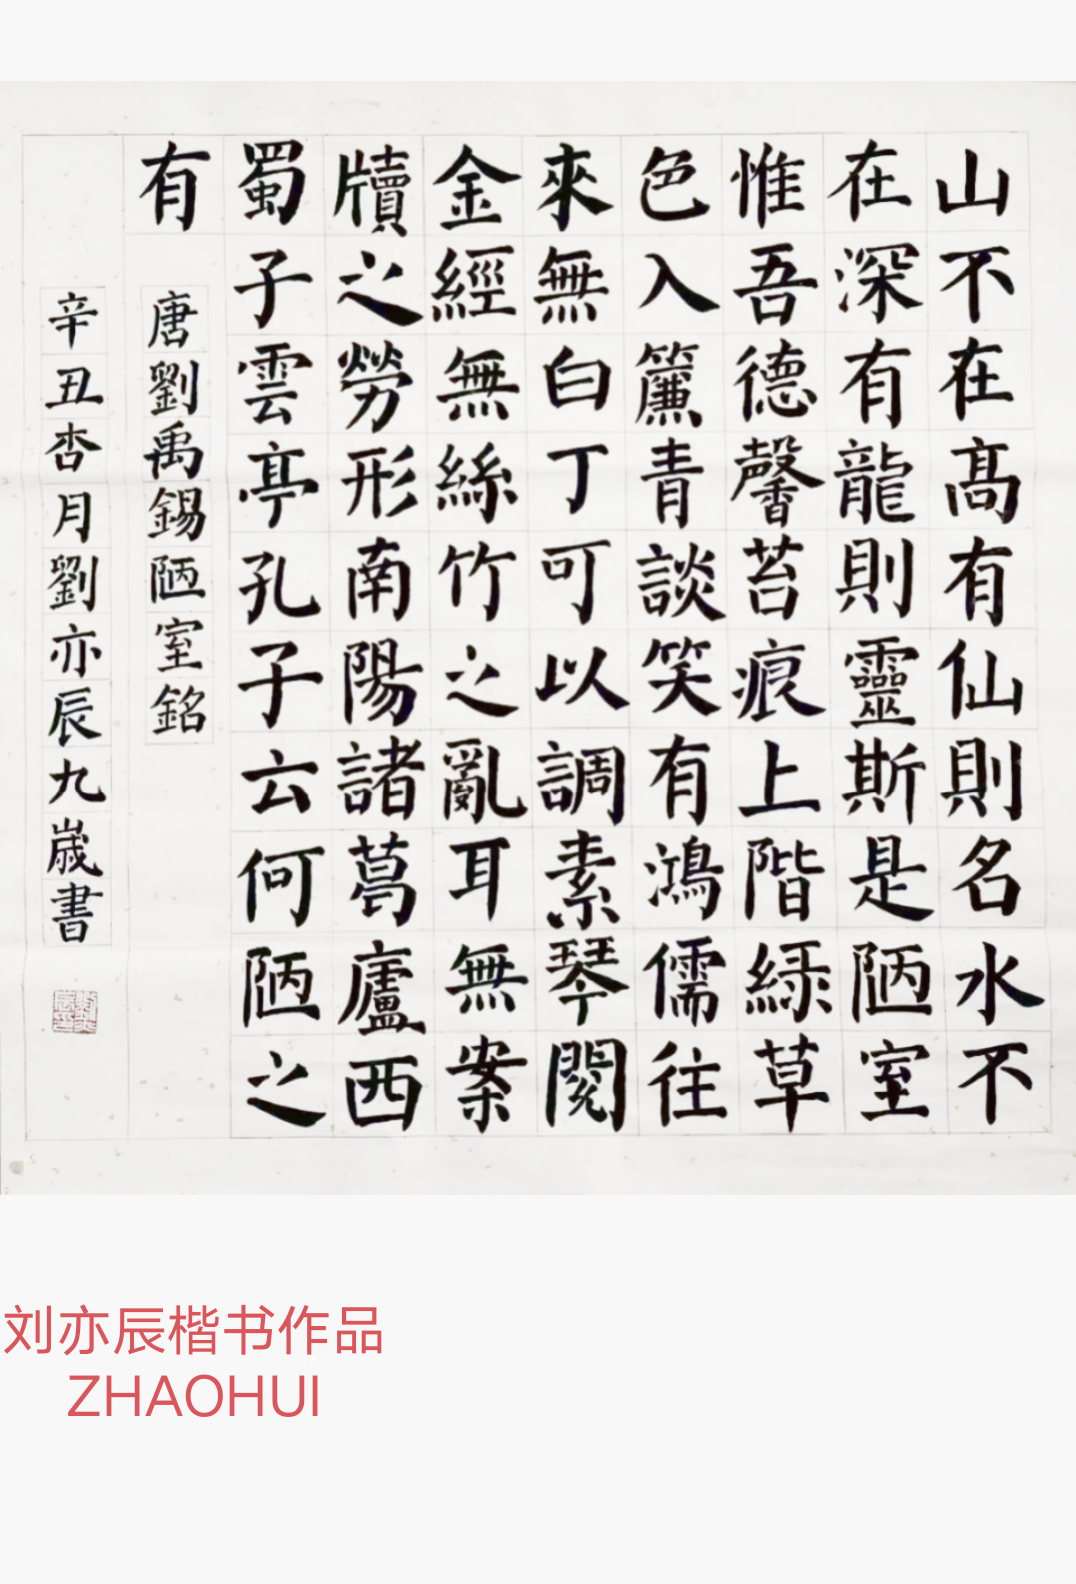 山不在高有仙則名水不
在深有龍則靈斯是陋室
惟吾德馨苔痕上階緑草
色入簾青談笑有鴻儒往
來無白丁可以調素琴閱
金經無絲竹之亂耳無案
牘之勞形南陽諸葛廬西
蜀子雲亭孔子云何陋之
有
唐劉禹錫陋室銘
辛丑杏月劉亦辰九歲書
刘亦辰楷书作品
ZHAOHUI